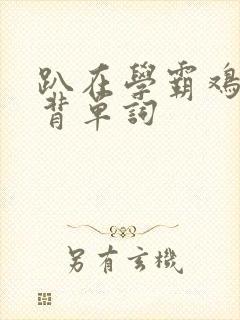 趴在學霸鸡
背單詞
另有玄機